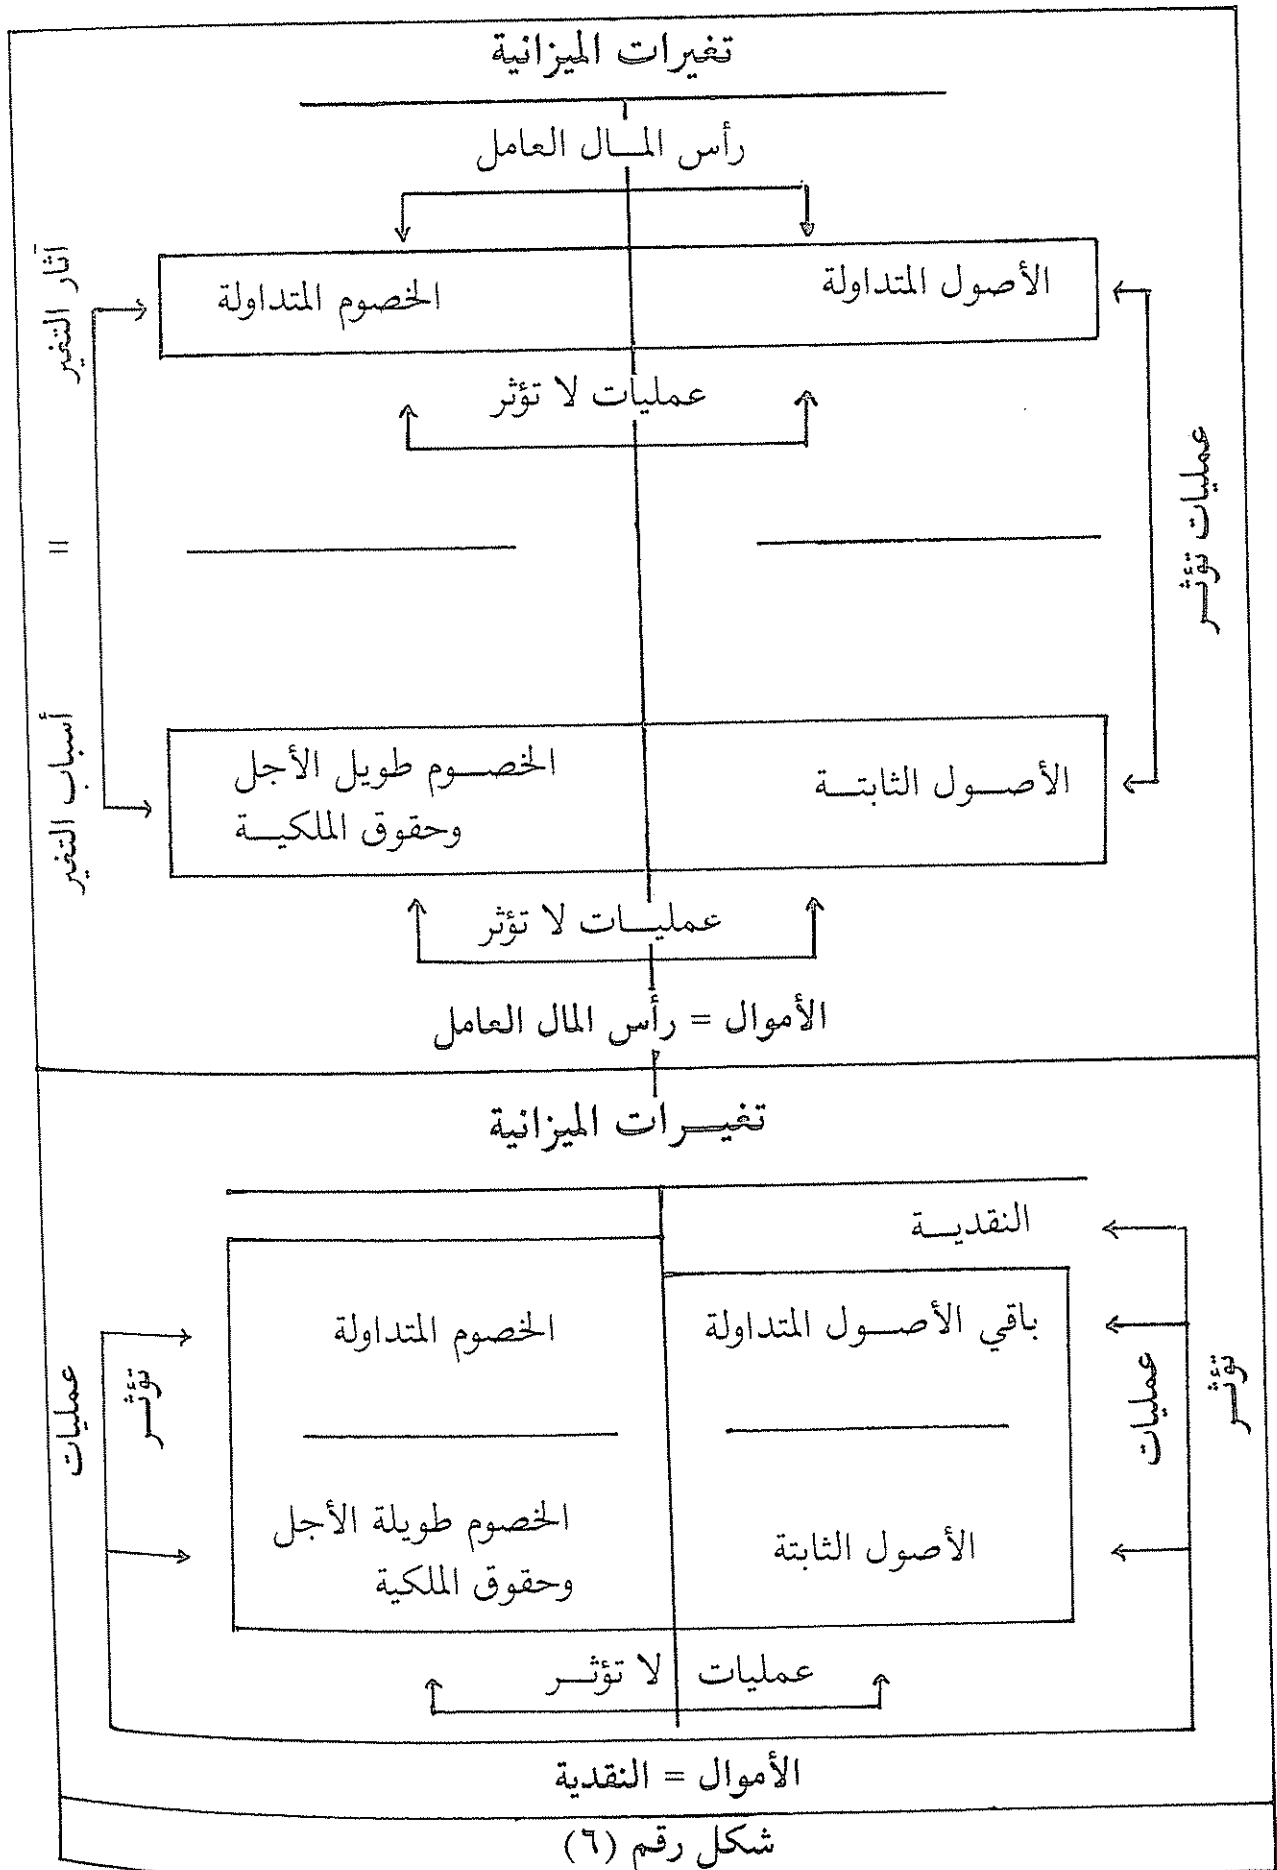 تغيرات الميزانية
رأس المـــال العامل
الأصول المتداولة
الخصوم المتداولة
آثار التغير
عمليات لا تؤثر
عمليات تؤثـــر
=
أسباب التغير
الأصـــول الثابتـــة
الخصـــوم طويل الأجل
وحقوق الملكيـــة
عمليـــات لا تؤثر
الأموال = رأس المال العامل
تغيـــرات الميزانية
النقديـــة
باقي الأصـــول المتداولة
الخصوم المتداولة
تؤثـــر
عمليات
تؤثـــر
عمليات
الأصول الثابتة
الخصوم طويلة الأجل
وحقوق الملكية
عمليات لا تؤثـــر
الأموال = النقدية
شكل رقم (٦)